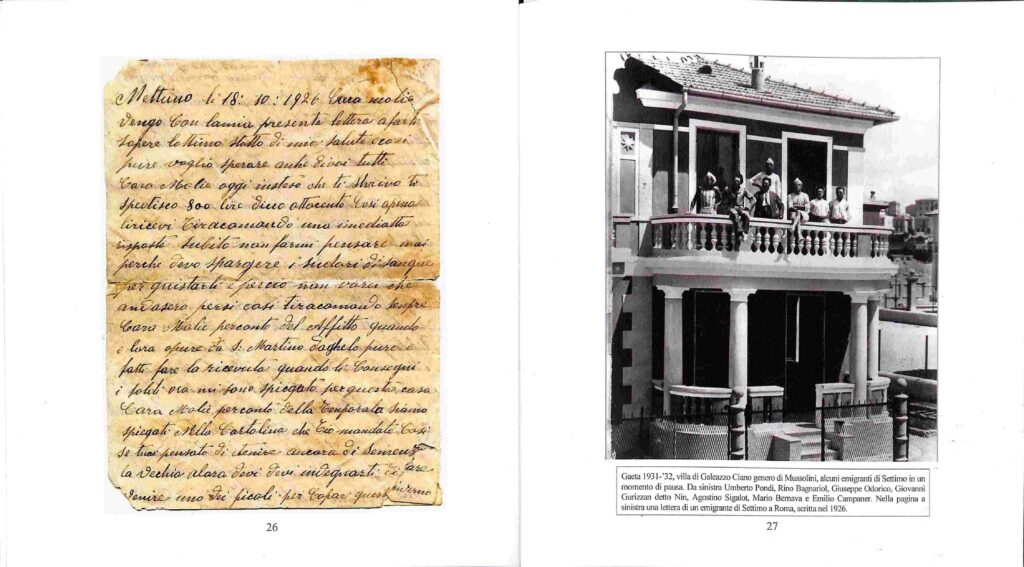 Mettuno li 18: 10: 1926 Cara molie
vengo Con lannia presente lettera a farti
sapere lottimo stato di mio salute e cosi
pure voglio sperare anche di voi tutti
Cara Molie oggi insteso che ti shrivo ti
spedisco 800 lire dico ottocento Cosi apena
liricevi Tiracomando una imediatta
risposta subito non farmi pensare mai
perche devo spargere i sudori di sangue
per quistarli e percio non vorei che
andasero persi cosi tiracomando sempre
Cara Molie perconto del Affitto quando
e lora opure da S. Martino daghelo pure e
fatti fare la riceveuta quando li Consegni
i soldi ora mi sono spiegato per questa cosa
Cara Molie perconto della Temporata siamo
spiegati Nella Cartolina che Tio mandato Cosi
se tuai pensato di tenire ancora di
la Vechia alora devi devi indegnarti di fare
tenire uno dei picoli per Copar quest inverno
26
Gaeta 1931-'32, villa di Galeazzo Ciano genero di Mussolini, alcuni emigranti di Settimo in un
momento di pausa. Da sinistra Umberto Pondi, Rino Bagnariol, Giuseppe Odorico, Giovanni
Gurizzan detto Nin, Agostino Sigalot, Mario Bernava e Emilio Campaner. Nella pagina a
sinistra una lettera di un emigrante di Settimo a Roma, scritta nel 1926.
27